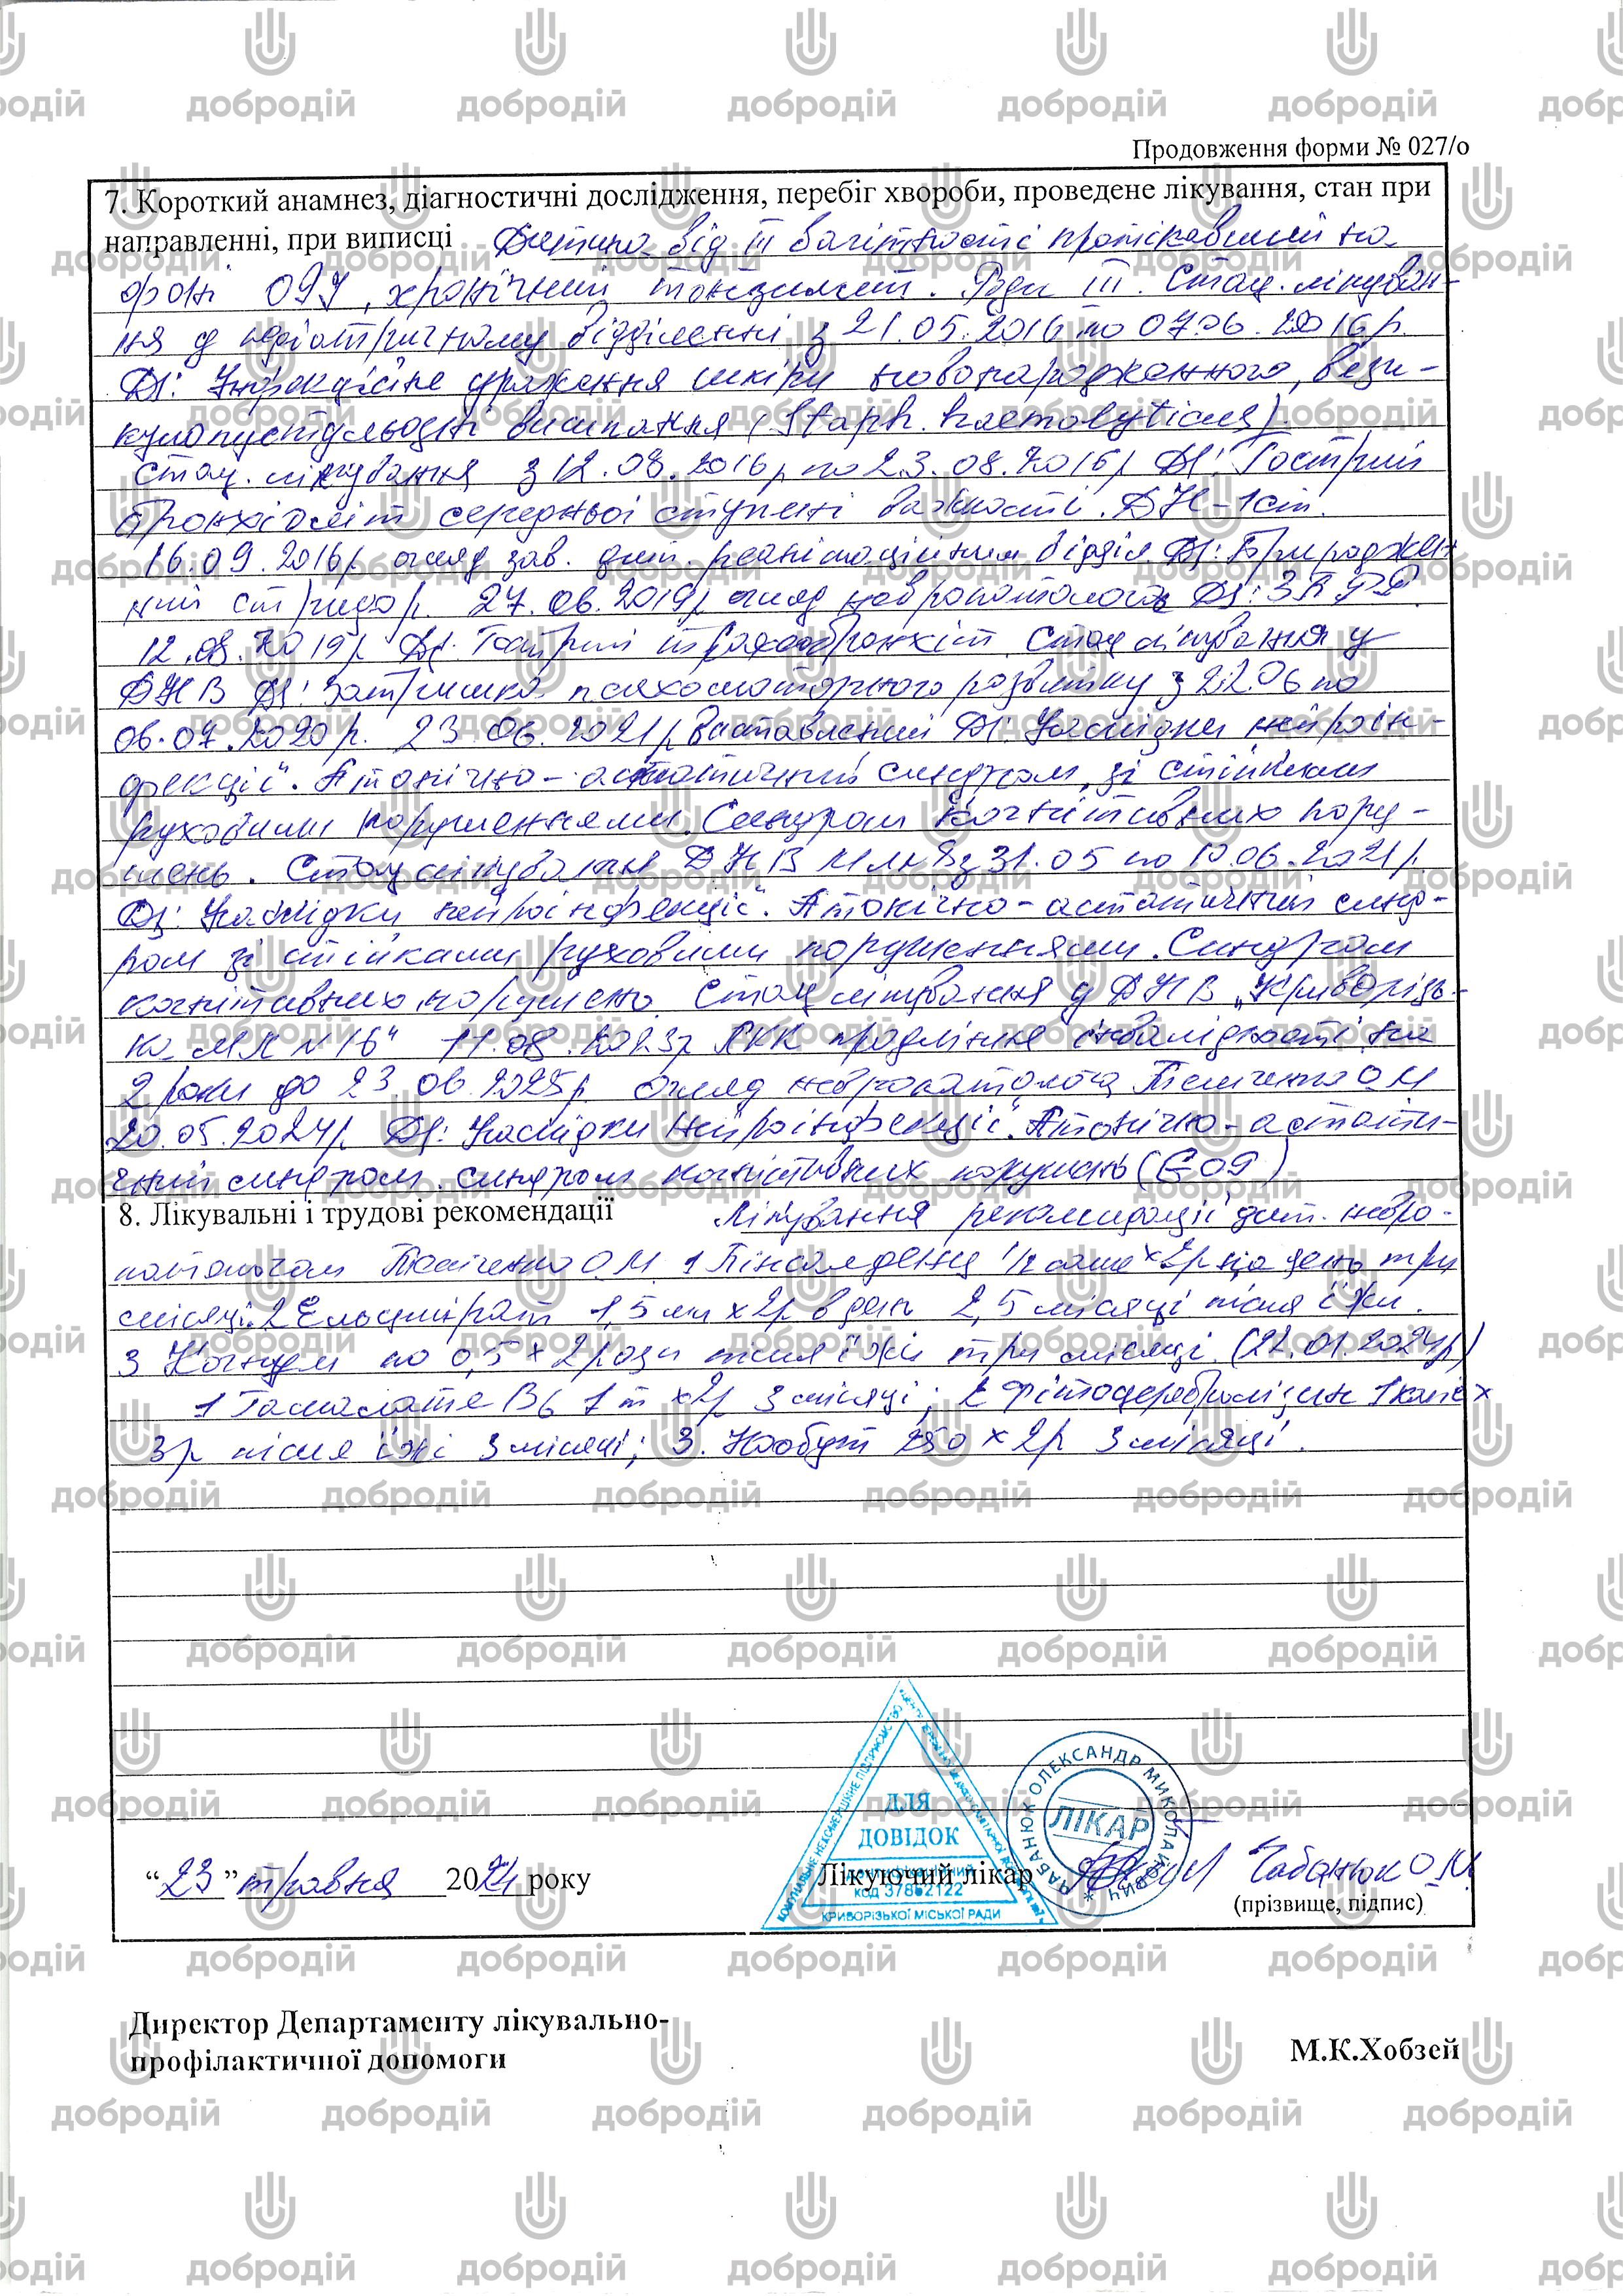 Продовження форми № 027/о
7. Короткий анамнез, діагностичні дослідження, перебіг хвороби, проведене лікування, стан при
направленні, при виписці Дитина від III вагітності протікавший на
фоні ОЗУ, хронічний тонзиліт. Роди III. Стац. лікуван-
ня у педіатричному відділенні з 21.05.2016 по 07.06.2016р.
Дз: Інфекційне ураження шкіри новонародженного, вези-
кулопустульодні висипання (Staph. haemolyticus).
Стац. лікування з 12.08.2016р по 23.08.2016р Дз: Гострий
бронхіоліт середньої ступені важкості. ДН-1ст.
16.09.2016р огляд зав. дит. реанімаційним відділ. Дз: Природжен
ний стридор. 27.06.2019р огляд невропатолога Дз: ЗПРР.
12.08.2019р Дз: Гострий трахеобронхіт. Стац лікування у
ДНВ Дз: Затримка психомоторного розвитку з 22.06 по
06.07.2020р. 23.06.2021р Виставлений Дз: Наслідки нейроін-
фекції. Атонічно-астатичний синдром зі стійкими
руховими порушеннями. Синдром когнітивних пору-
шень. Стац лікування ДНВ з 31.05 по 10.06.2021р.
Дз: Наслідки нейроінфекції. Атонічно-астатичний синд-
ром зі стійкими руховими порушеннями. Синдром
когнітивних порушень. Стац лікування у ДНВ „Криворізь-
ка МЛ №16" 11.08.2023р ЛКК продління інвалідності на
2 роки до 23.06.2025р. огляд невропатолога О М
20.05.2024р Дз: Наслідки нейроінфекції. Атонічно-астати-
чний синдром. синдром когнітивних порушень (G09)
8. Лікувальні і трудові рекомендації Лікування рекомендації дит. невро-
патолога О.М. 1 1/2 х 2р на день три
місяці. 2 1,5 мл х 2р в день 2,5 місяці після їжи.
3 Когнум по 0,5 х 2 рази після їжи три місяці. (22.01.2024р)
1 В6 1т х 2р 3 місяці; 2 Фітоцеребролізин 1 капс х
3р після їжі 3 місяці; 3. Нообут 250 х 2р 3 місяці.
“23” травня 2024 року
Лікуючий лікар Чабанюк О.М.
(прізвище, підпис)
ДЛЯ
ДОВІДОК
ідентифікаційний
код 37862122
КРИВОРІЗЬКОЇ МІСЬКОЇ РАДИ
КОМУНАЛЬНЕ НЕКОМЕРЦІЙНЕ ПІДПРИЄМСТВО
ЧАБАНЮК ОЛЕКСАНДР МИКОЛАЙОВИЧ
ЛІКАР
Директор Департаменту лікувально-
профілактичної допомоги
М.К.Хобзей
добродій